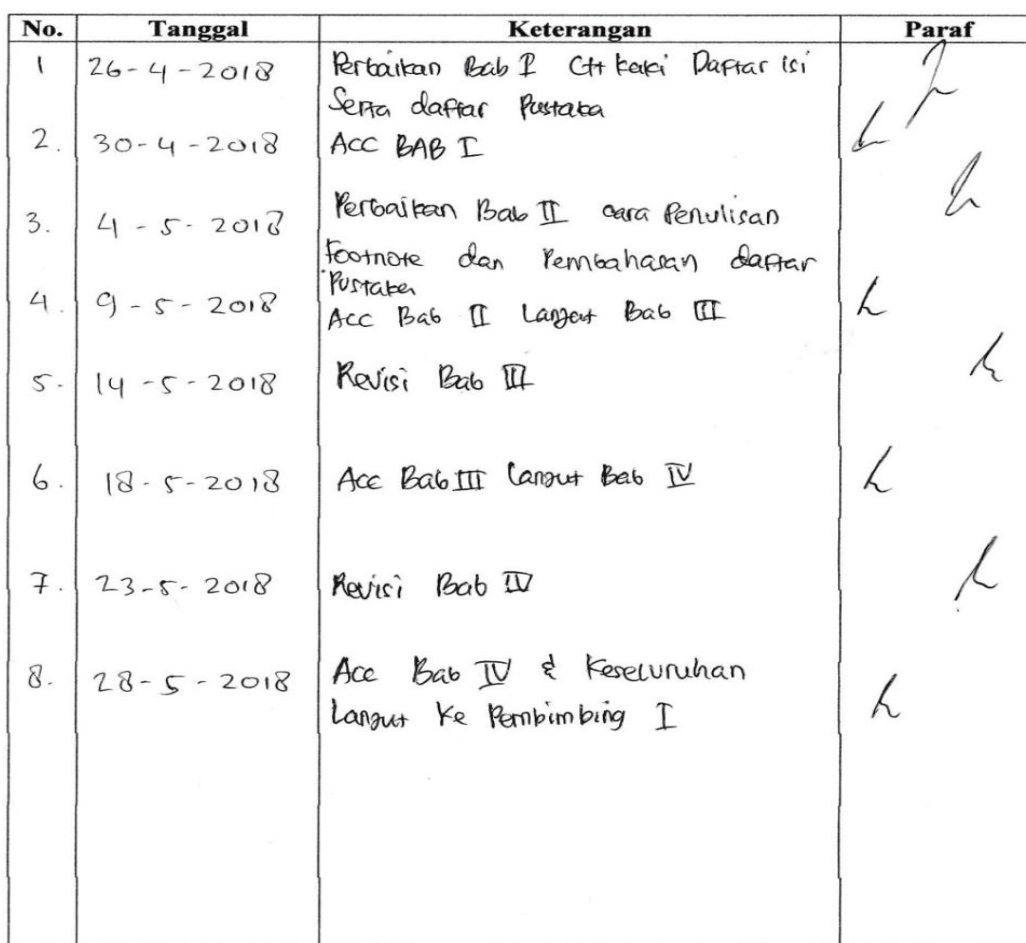 No. Tanggal Keterangan Paraf
1 26-4-2018 Perbaikan Bab I Ctt kaki Daftar isi
Serta daftar Pustaka
2. 30-4-2018 ACC BAB I
3. 4-5-2018 Perbaikan Bab II cara Penulisan
Footnote dan Pembahasan daftar
Pustaka
4. 9-5-2018 Acc Bab II Lanjut Bab III
5. 14-5-2018 Revisi Bab III
6. 18-5-2018 Acc Bab III Lanjut Bab IV
7. 23-5-2018 Revisi Bab IV
8. 28-5-2018 Acc Bab IV & Keseluruhan
Lanjut Ke Pembimbing I